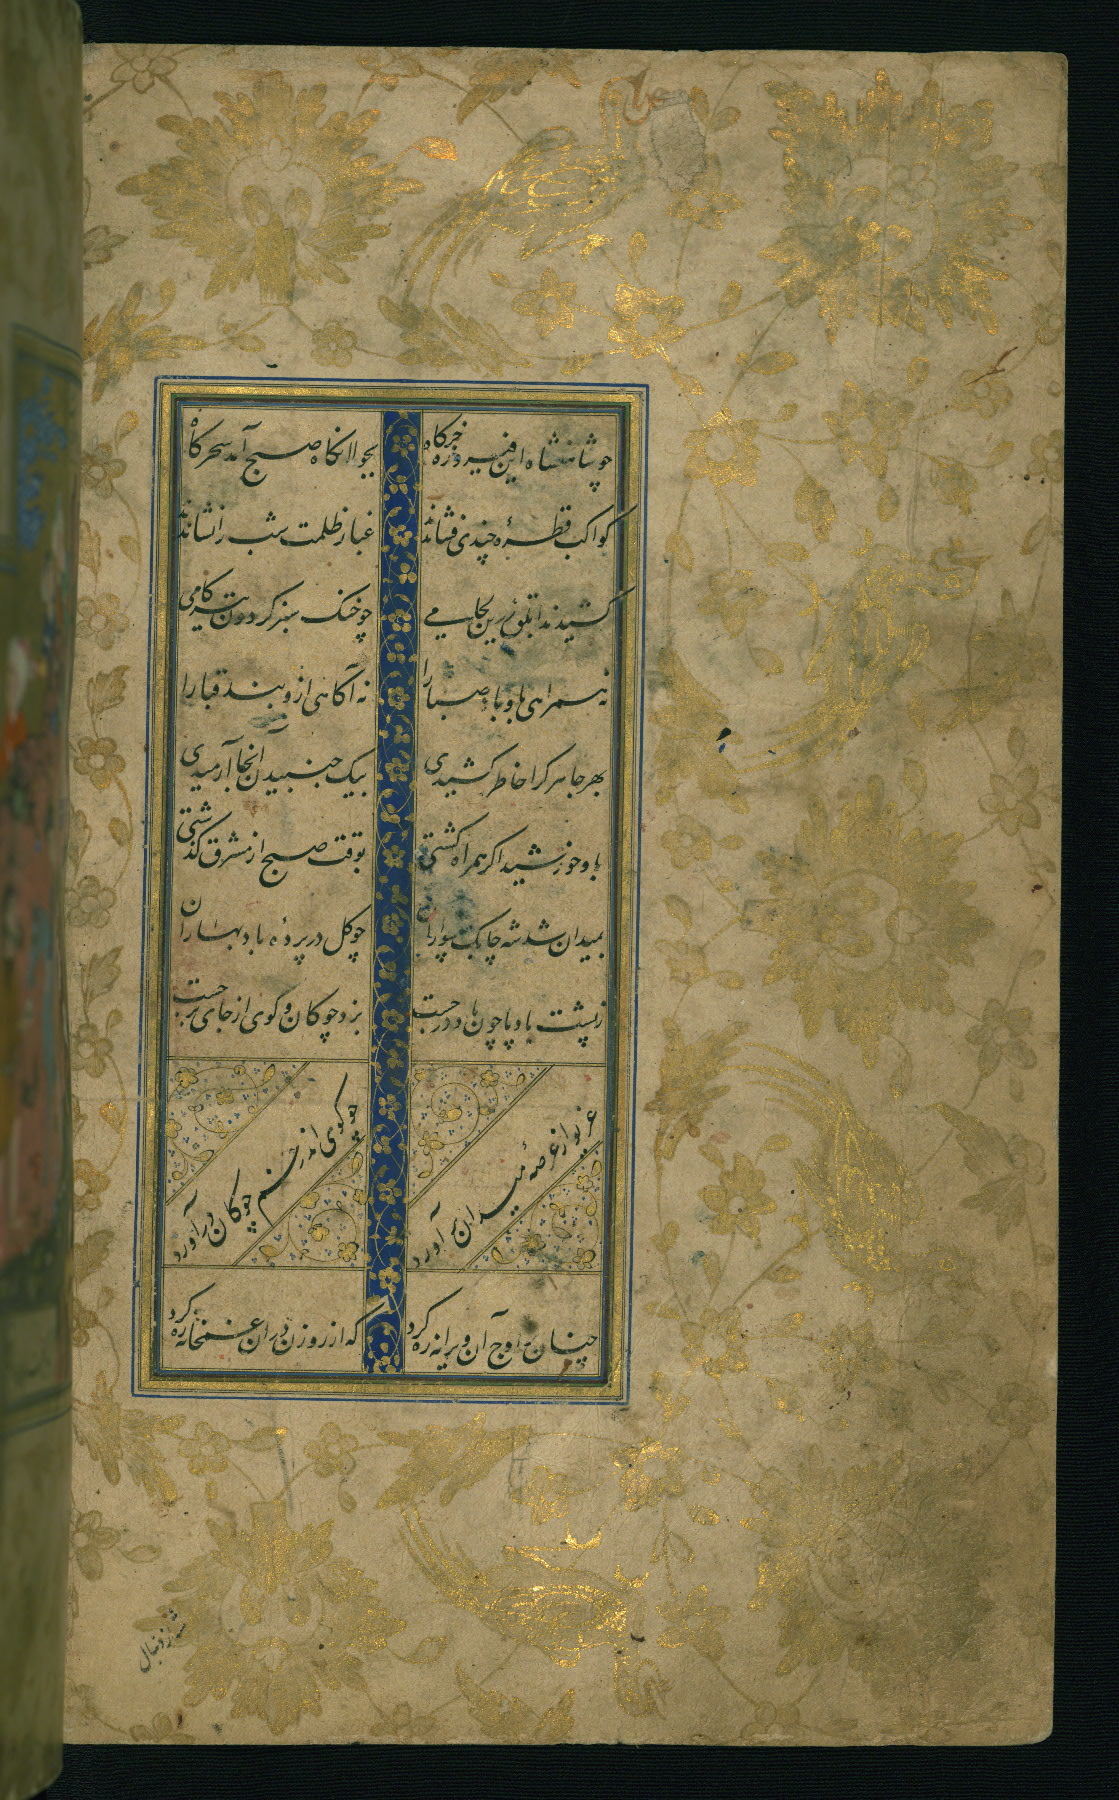 چو شاهنشاه این فیروزه خرکاه بجولانکاه صبح آمد سحرکاه
کواکب قطرهٔ چندی فشاندند غبار ظلمت شب را نشاندند
کشیدند ابلق زرین لجامی چو خنک سبز کردون تیزکامی
نه همراهی باو باد صبا را نه آکاهی ازو بند قبا را
بهر جا هر کرا خاطر کشیدی بیک جنبیدن آنجا آرمیدی
باو خورشید اکر همراه کشتی بوقت صبح از مشرق کذشتی
بمیدان شد شه چابک سواران چو کل در پردهٔ باد بهاران
ز پشت باد پا چون باد در جست بزد چوکان و کوی از جای بر جست
غریو از عرصهٔ میدان بر آورد چو کوی اندر خم چوکان در آورد
چنان بر اوج آن ویرانه ره کرد که از روزن در آن غمخانه ره کرد
شه از دنبال